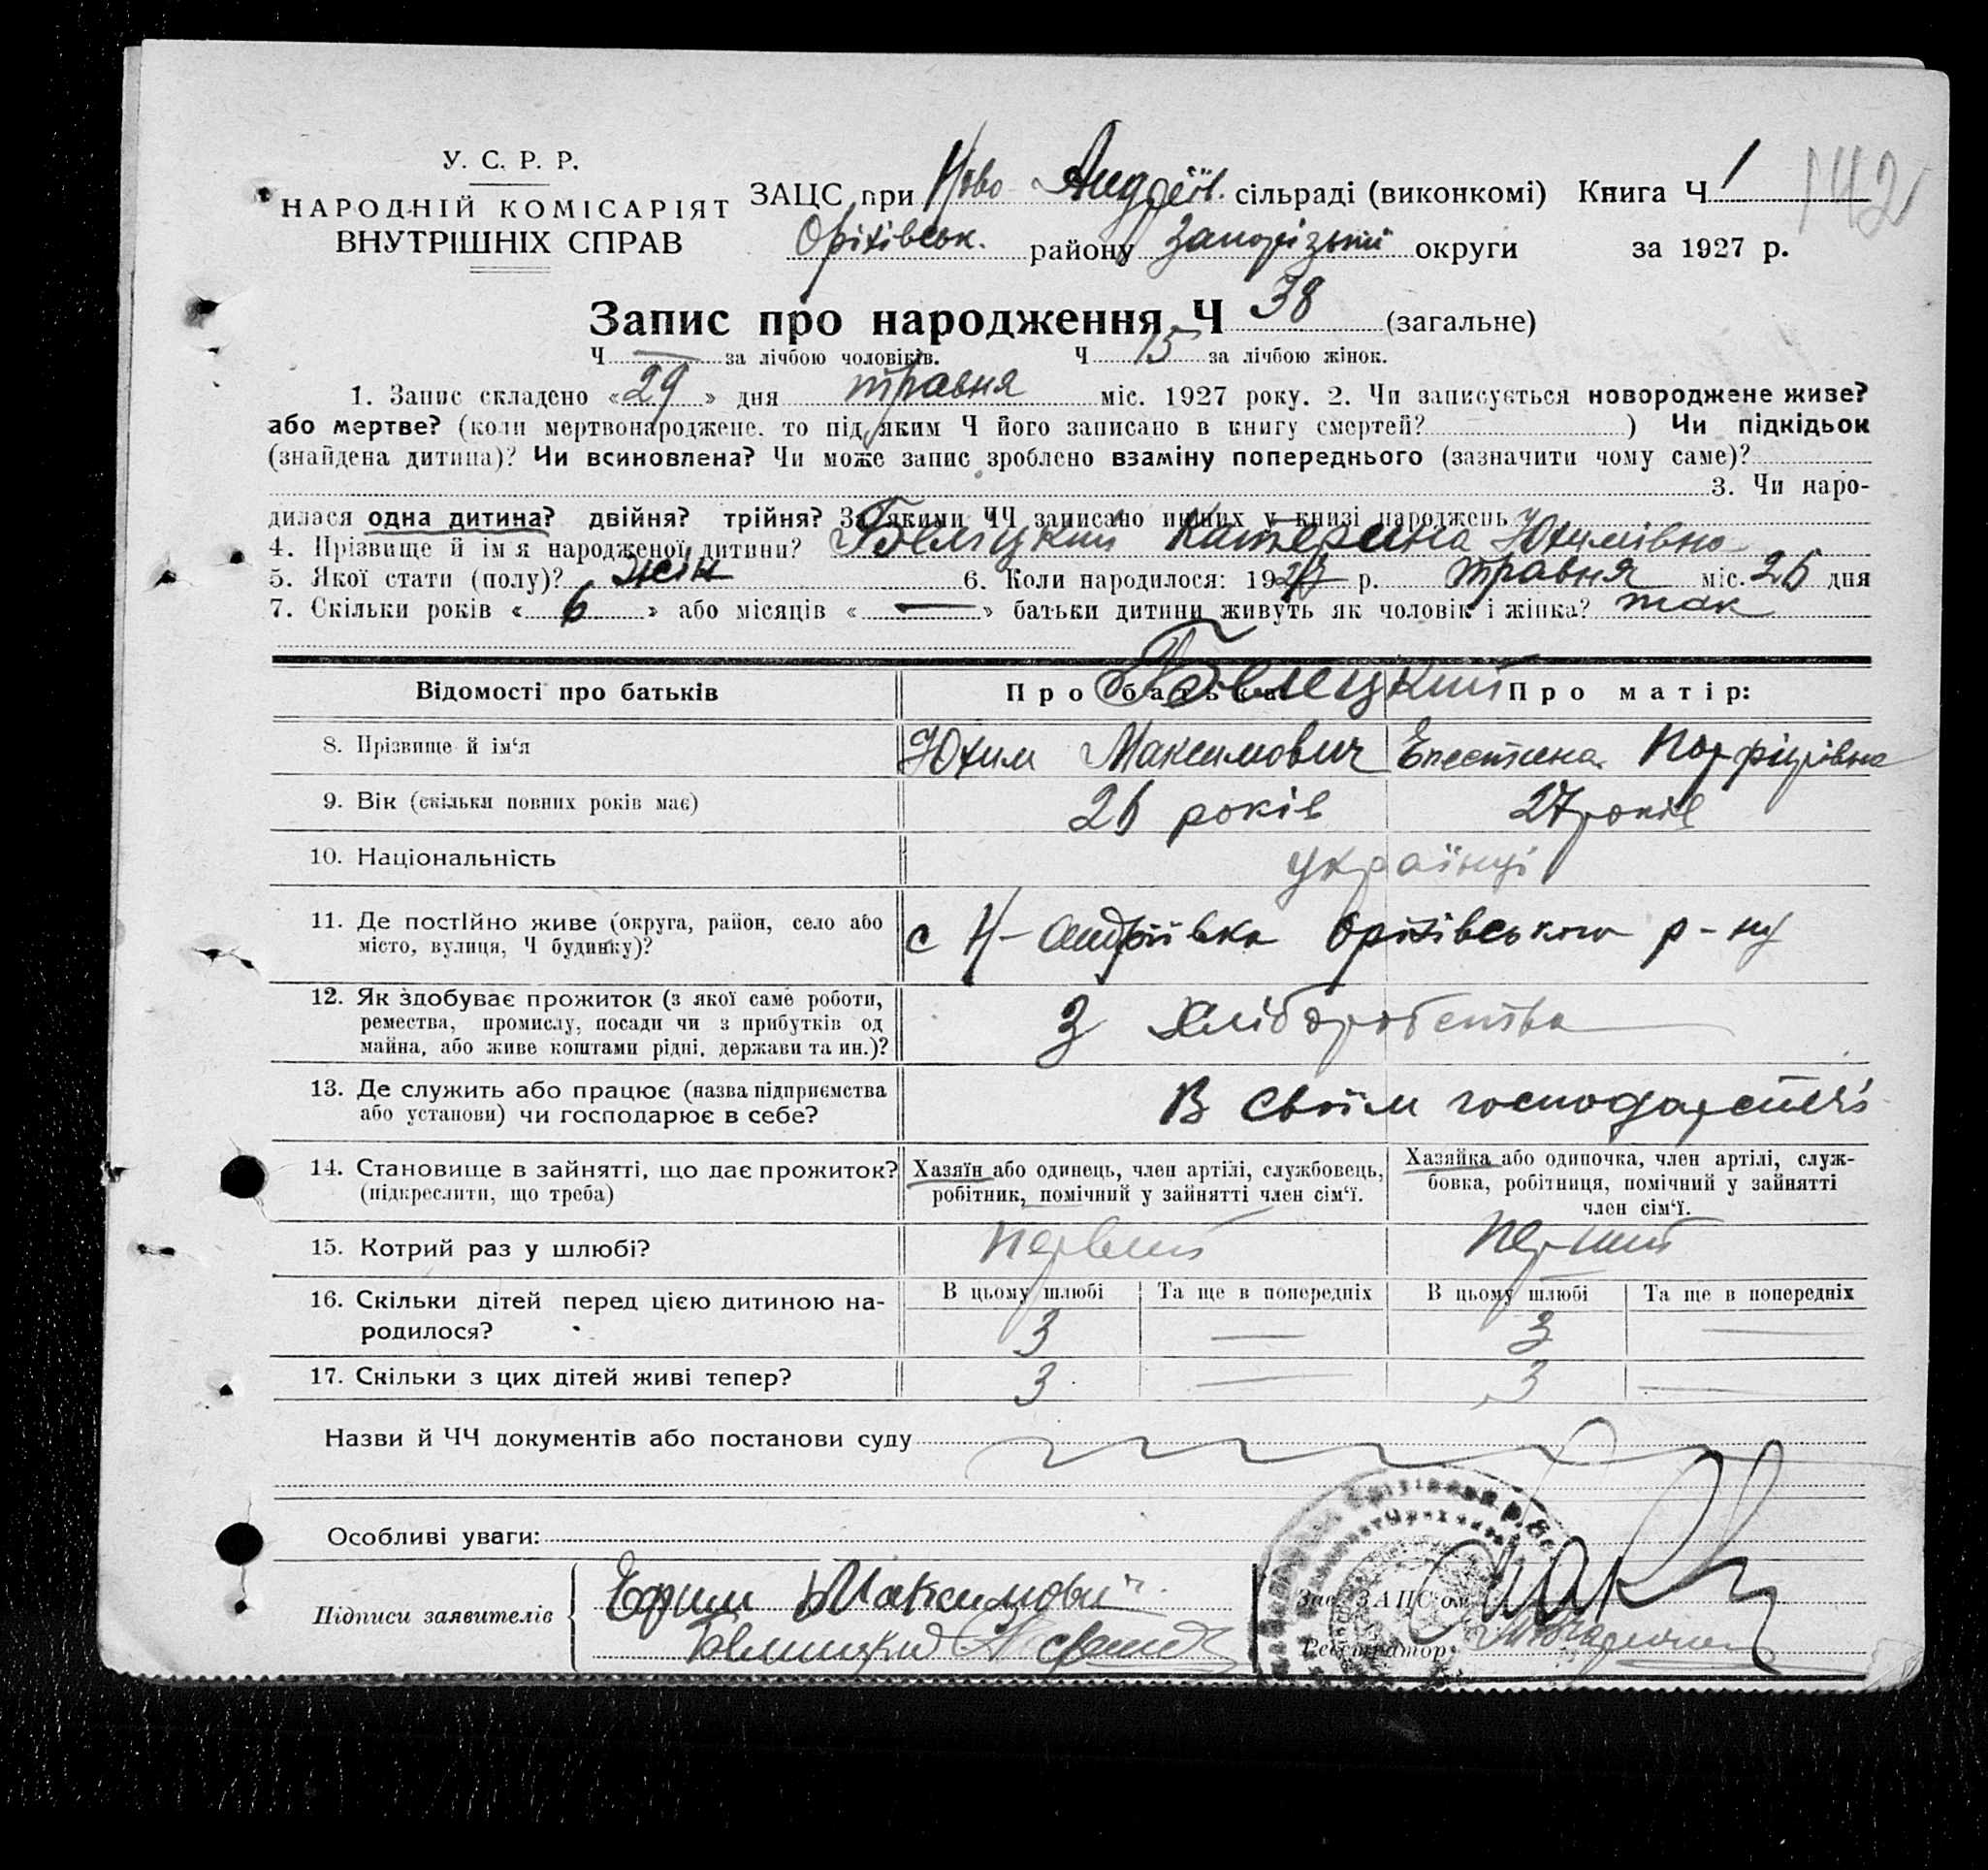 У. С. Р. Р.
НАРОДНІЙ КОМІСАРІЯТ
ВНУТРІШНІХ СПРАВ
ЗАЦС при Ново-Андріїв. сільраді (виконкомі) Книга Ч 1 142
Оріхівськ. району Запорізький округи за 1927 р.
Запис про народження Ч 38 (загальне)
Ч — за лічбою чоловіків. Ч 15 за лічбою жінок.
1. Запис складено «29» дня травня міс. 1927 року. 2. Чи записується новороджене живе?
або мертве? (коли мертвонароджене, то під яким Ч його записано в книгу смертей? ) Чи підкідьок
(знайдена дитина)? Чи всиновлена? Чи може запис зроблено взаміну попереднього (зазначити чому саме)?
3. Чи наро-
дилася одна дитина? двійня? трійня? За якими ЧЧ записано инших у книзі народжень
4. Прізвище й ім'я народженої дитини? Катерина Юхимівна
5. Якої стати (полу)? жін 6. Коли народилося: 1927 р. травня міс. 26 дня
7. Скільки років « 6 » або місяців « — » батьки дитини живуть як чоловік і жінка? так
Відомості про батьків Про батька: Про матір:
8. Прізвище й ім'я Юхим Максимович Порфирівна
9. Вік (скільки повних років має) 26 років 27 років
10. Національність українці
11. Де постійно живе (округа, район, село або
місто, вулиця, Ч будинку)?
с Н-Андріївка Оріхівського р-ну
12. Як здобуває прожиток (з якої саме роботи,
ремества, промислу, посади чи з прибутків од
майна, або живе коштами рідні, держави та ин.)?
З хліборобства
13. Де служить або працює (назва підприємства
або установи) чи господарює в себе?
В своїм господарстві
14. Становище в зайнятті, що дає прожиток?
(підкреслити, що треба)
Хазяїн або одинець, член артілі, службовець,
робітник, помічний у зайнятті член сім'ї.
Хазяйка або одиночка, член артілі, служ-
бовка, робітниця, помічний у зайнятті
член сім'ї.
15. Котрий раз у шлюбі? Первий Перший
16. Скільки дітей перед цією дитиною на-
родилося?
В цьому шлюбі Та ще в попередніх В цьому шлюбі Та ще в попередніх
3 — 3 —
17. Скільки з цих дітей живі тепер? 3 — 3 —
Назви й ЧЧ документів або постанови суду
Особливі уваги:
Підписи заявителів
Ефим Максимович
Зав. ЗАЦС'ом
Реєстратор